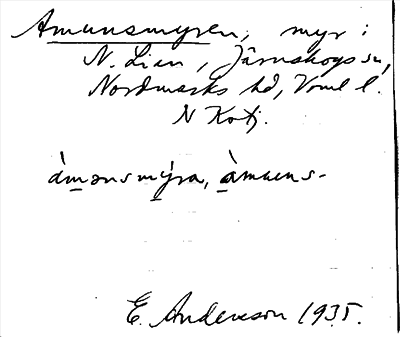 Amunsmyren, myr i
N. Lian, Järnskogs sn,
Nordmarks hd, Vrml l.
N Kotj.
àmənsmýra, àmuens-
E. Anderson 1935.